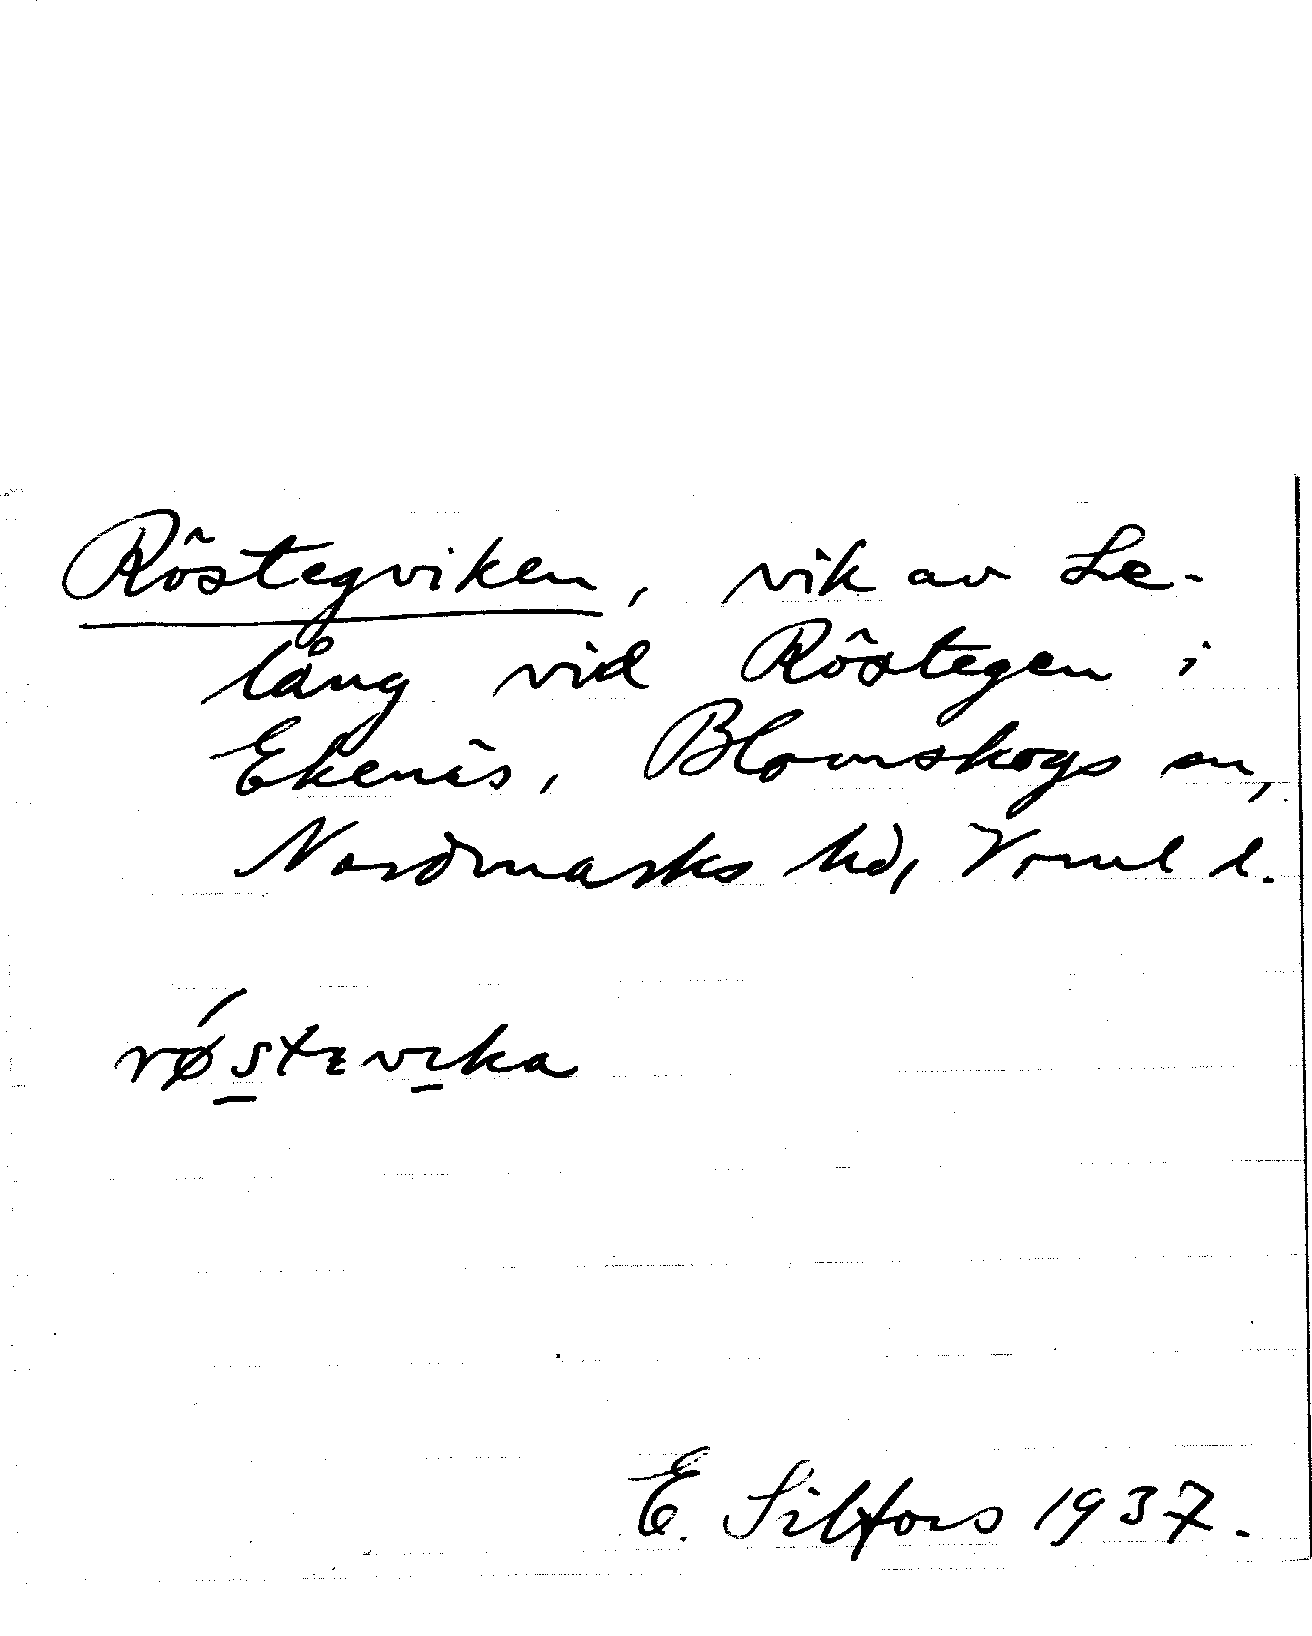 Röstegviken, vik av Le-
lång vid Röstegen i
Ekenäs, Blomskogs sn,
Nordmarks hd, Vrml l.
røstɛvıka
E. Silfors 1937.